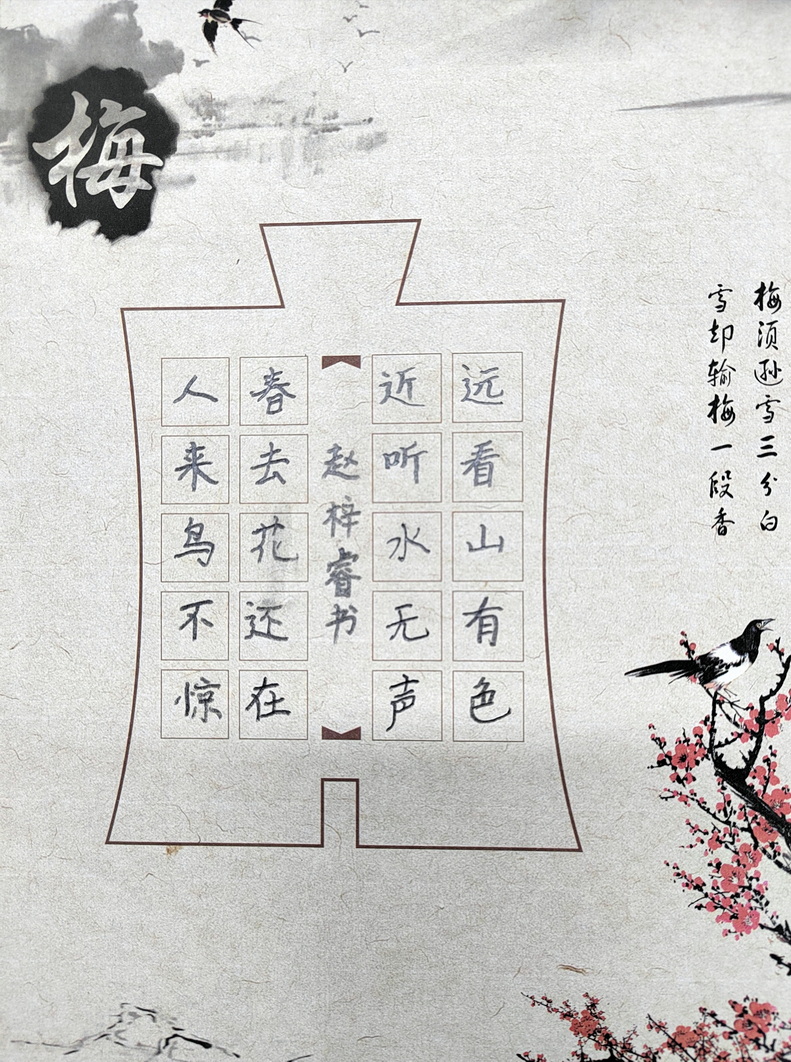 梅
梅须逊雪三分白
雪却输梅一段香
远看山有色
近听水无声
赵梓睿书
春去花还在
人来鸟不惊